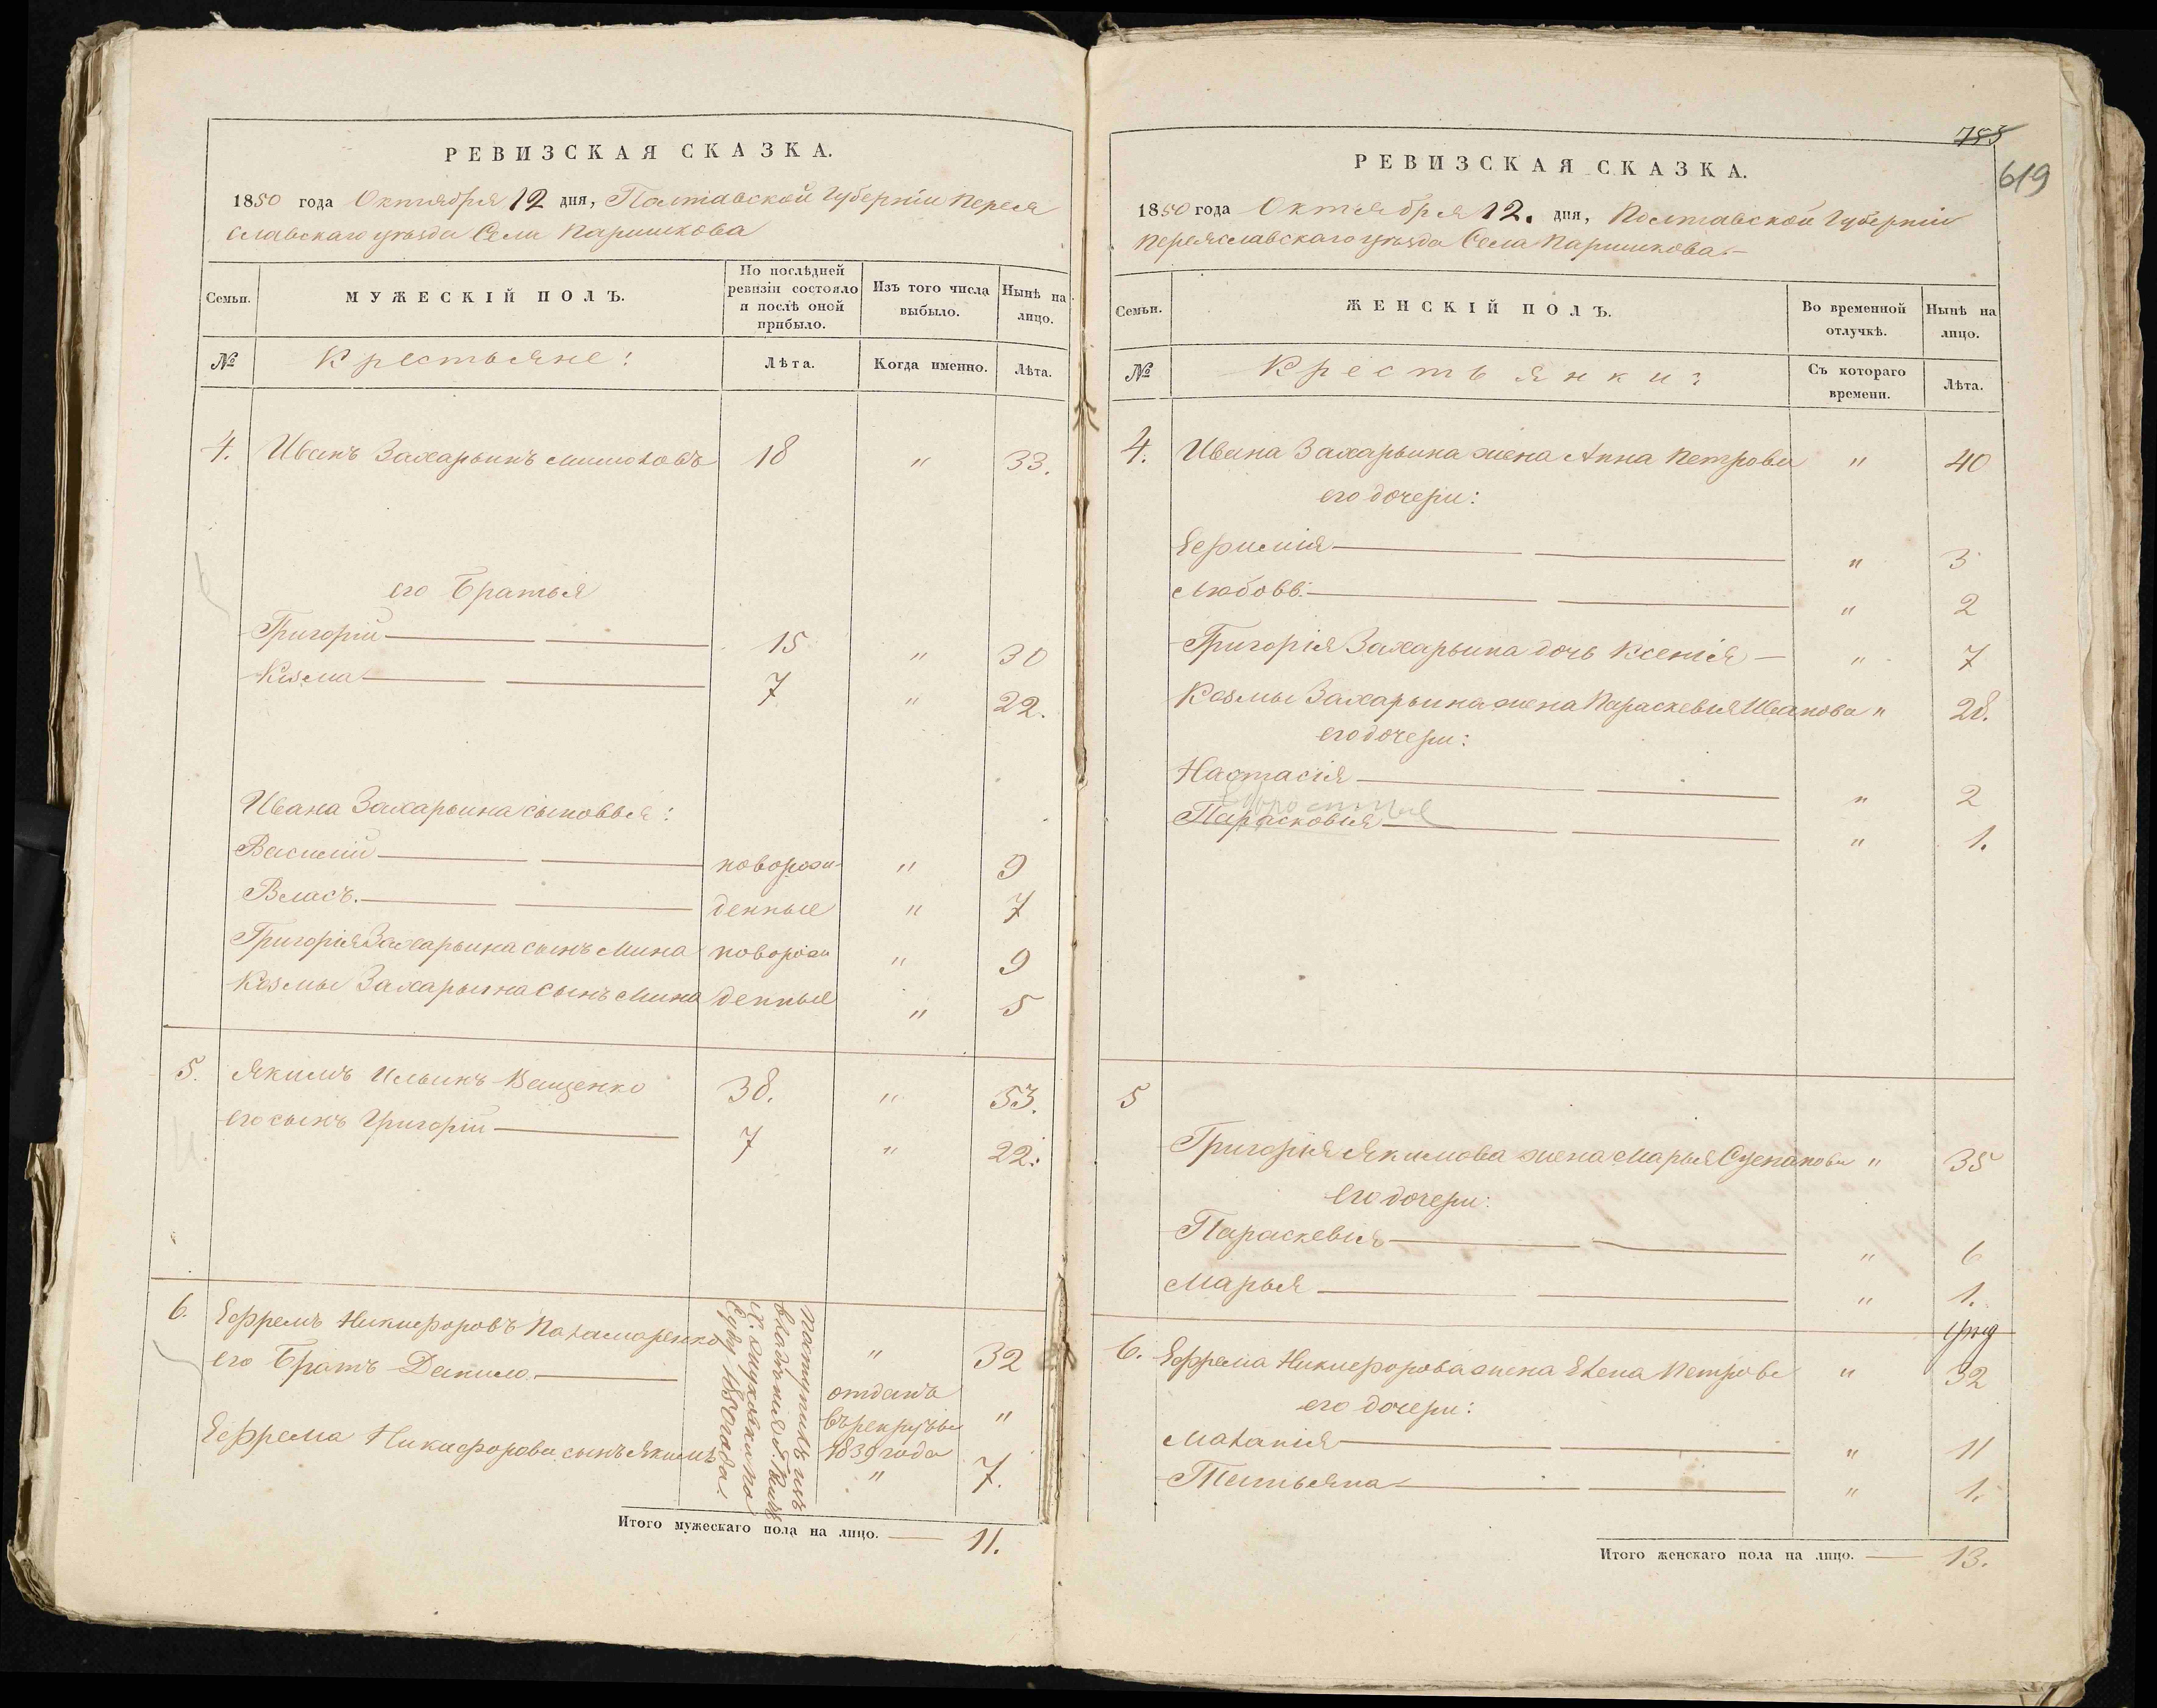 РЕВИЗСКАЯ СКАЗКА.
1850 года Октября 12 дня, Полтавской Губерніи Перея
славскаго уѣзда Села Паришкова
Семьи.
МУЖЕСКІЙ ПОЛЪ.
По послѣдней ревизіи состояло и послѣ оной прибыло.
Изъ того числа выбыло.
Нынѣ на лицо.
№ Крестьяне: Лѣта. Когда именно. Лѣта.
4. Иванъ Захарьинъ 18 " 33.
его Братья
Григорій 15 " 30
Козма 7 " 22.
Ивана Захарьина сыновья:
Василій новорож " 9
Власъ. денные " 7
Григорія Захарьина сынъ Мина новорож " 9
Козмы Захарьина сынъ Мина денные " 5
5. Якимъ Ильинъ Ващенко 38. " 53.
его сынъ Григорій 7 " 22.
6. Ефремъ Никифоровъ Паламаренко " 32
его Братъ Данило отданъ въ рекруты 1839 года "
Ефрема Никифорова сынъ Якимъ " 7.
поступилъ изъ
владѣнія
по
1850 года.
Итого мужескаго пола на лицо. 11.
783
619
РЕВИЗСКАЯ СКАЗКА.
1850 года Октября 12. дня, Полтавской Губерніи
Переяславскаго уѣзда Села Паришкова
Семьи.
ЖЕНСКІЙ ПОЛЪ.
Во временной отлучкѣ.
Нынѣ на лицо.
№ Крестьянки: Съ котораго времени. Лѣта.
4. Ивана Захарьина жена Анна Петрова " 40
его дочери:
Ефимія " 3
Любовь " 2
Григорія Захарьина дочь Ксенія " 7
Козмы Захарьина жена Параскевія Иванова " 28.
его дочери:
Настасія " 2
Парасковія " 1.
5
Григорія Якимова жена Марья Степанова " 35
его дочери:
Параскевія " 6
Марья " 1.
6. Ефрема Никифорова жена Елена Петрова " 32
его дочери:
Маланія " 11
Татьяна " 1.
Итого женскаго пола на лицо. 13.